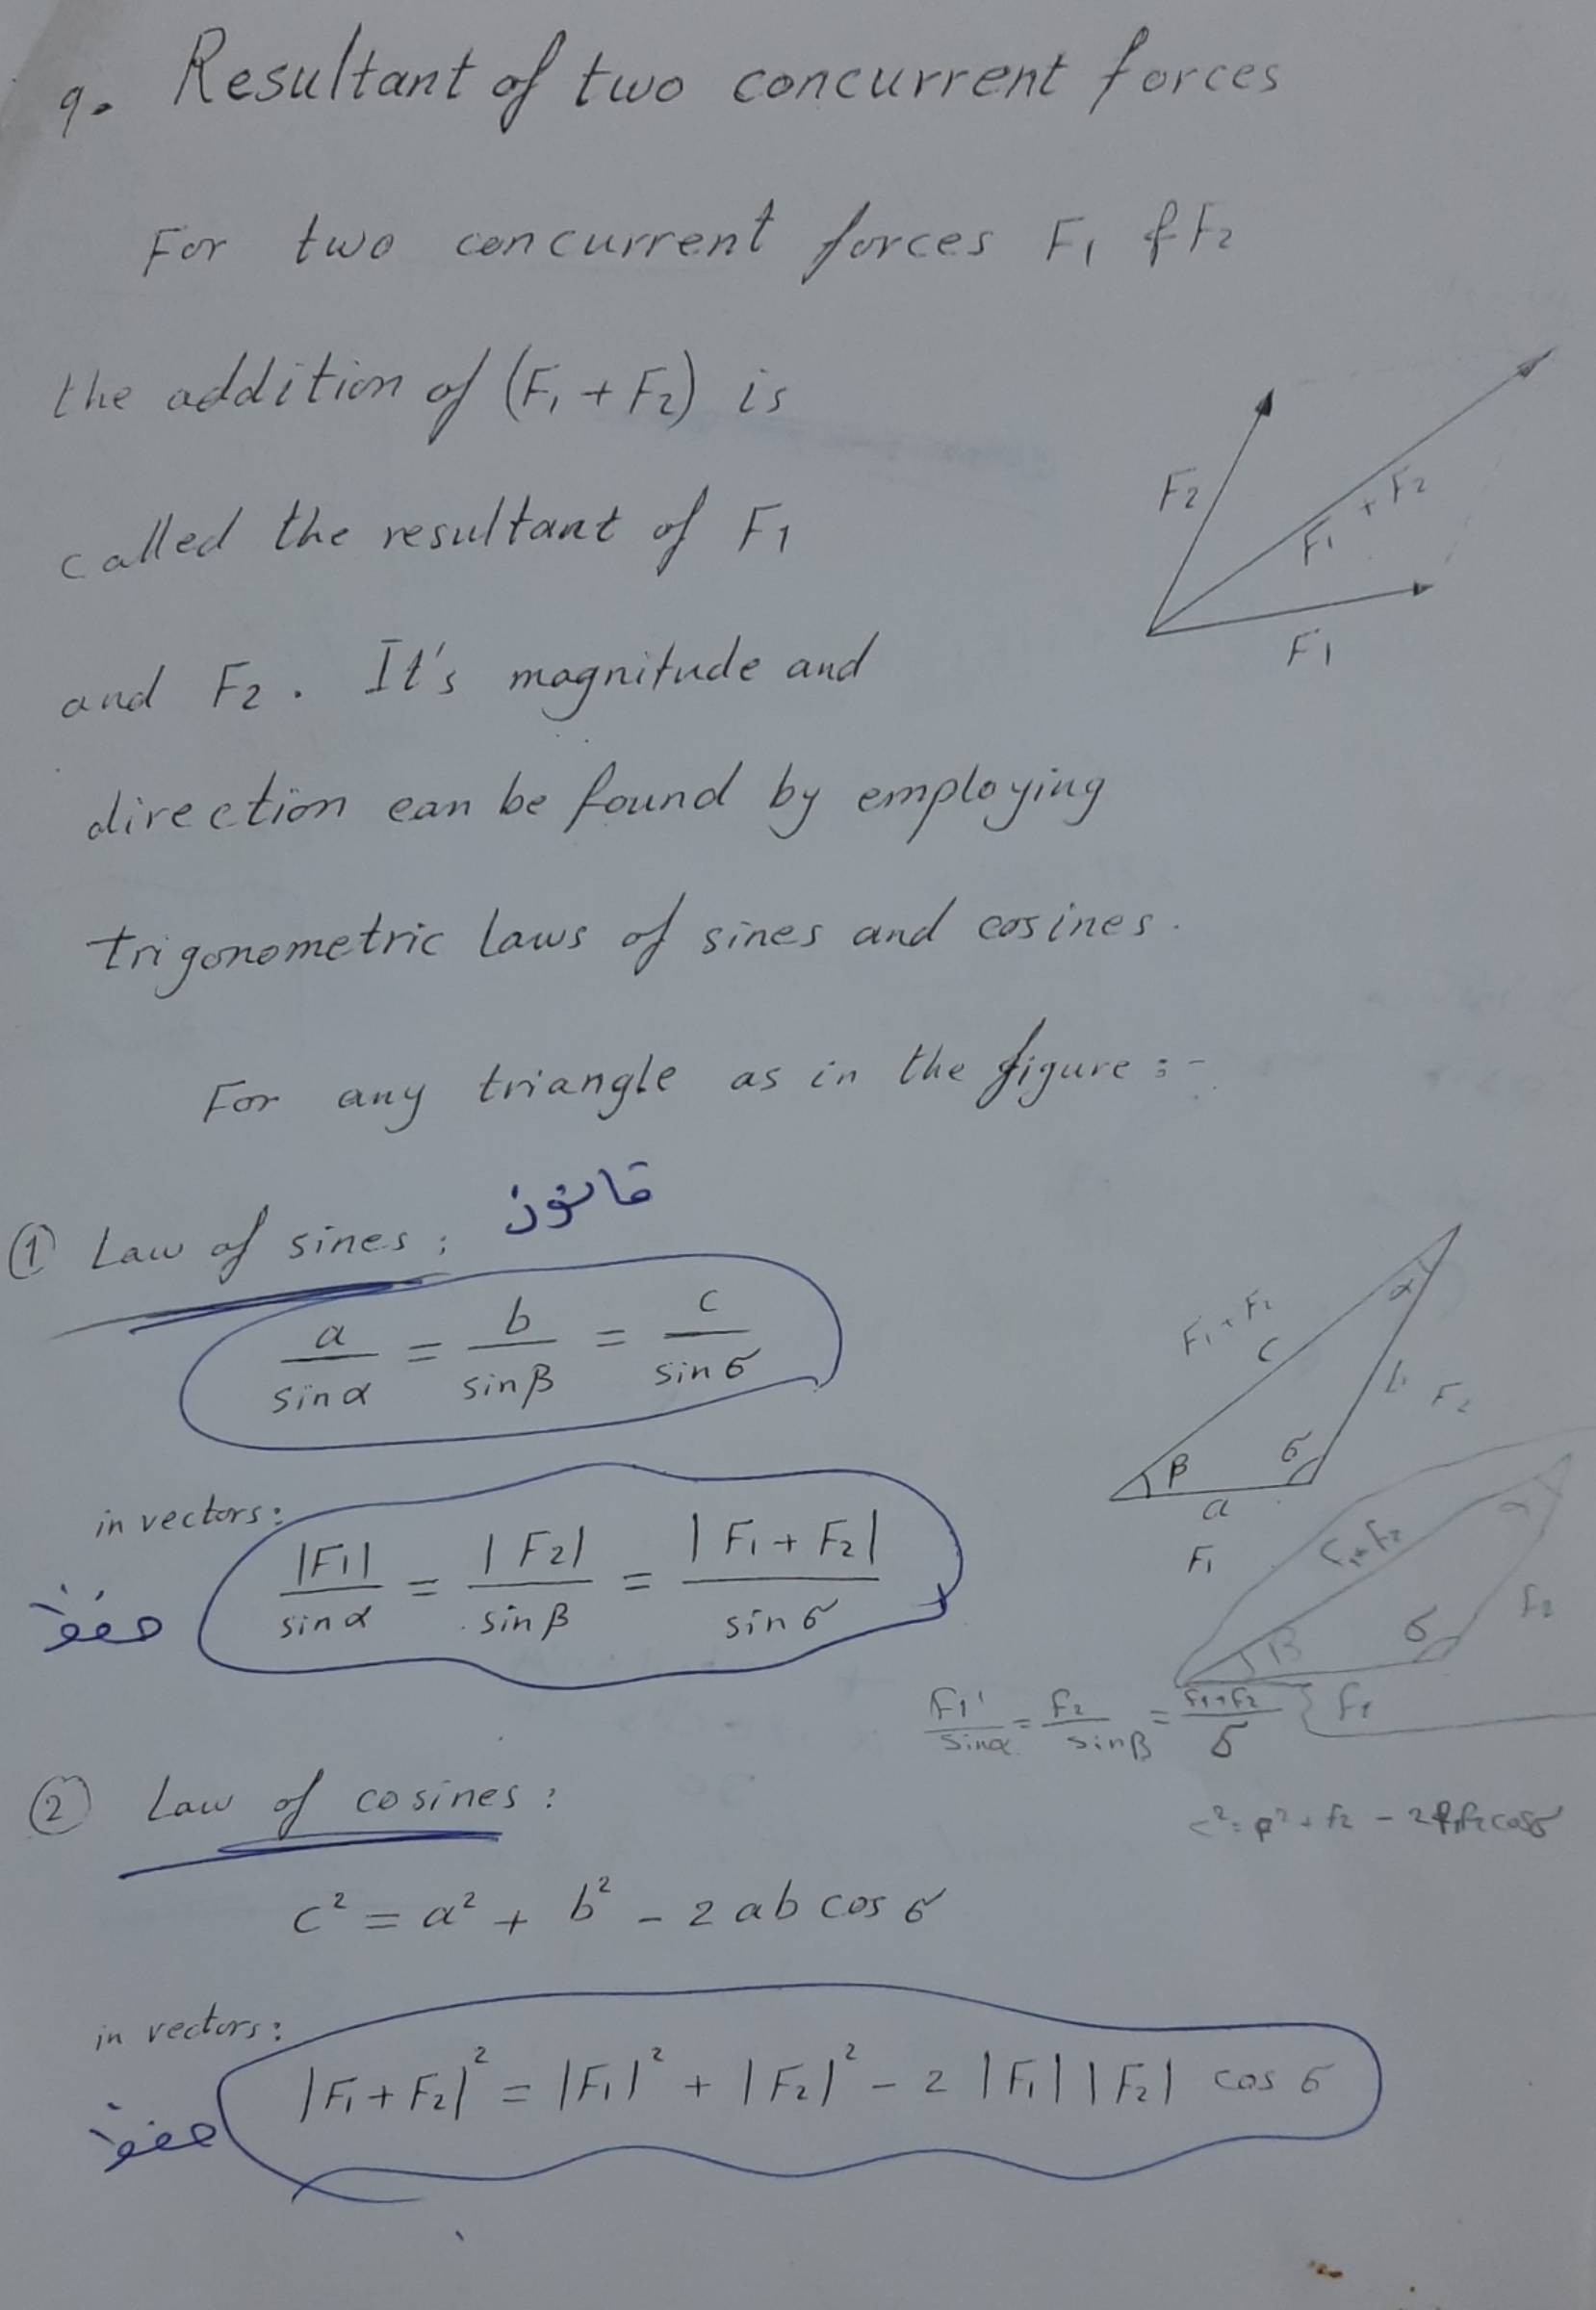 9. Resultant of two concurrent forces
For two concurrent forces F₁ & F₂
the addition of (F₁ + F₂) is
called the resultant of F1
and F₂. It's magnitude and
direction can be found by employing
trigonometric laws of sines and cosines.
F₂
F₁ + F₂
F1
For any triangle as in the figure:-
① Law of sines: قانون
a/sin α = b/sin β = c/sin σ
F₁ + F₂
c
α
b F₂
β
σ
a
F₁
in vectors:
|F1|/sin α = |F2|/sin β = |F₁ + F₂|/sin σ
حفظ
F₁+F₂
F₂
β
σ
α
F₁
F1/sin α = F₂/sin β = F₁+F₂/σ
② Law of cosines:
c² = a² + b² - 2 ab cos σ
in vectors:
|F₁ + F₂|² = |F₁|² + |F₂|² - 2 |F₁| |F₂| cos σ
حفظ